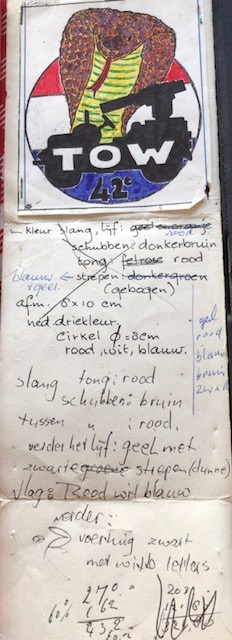 TOW
42e
kleur slang, lijf: geel oranje rood
schubben: donkerbruin
tong: felrose rood
blauw + geel. ← strepen: donkergroen
(gebogen)
afm. 8 x 10 cm
ned driekleur
cirkel ϕ = 8cm
rood, wit, blauw.
geel
rood
blauw
bruin
zwart
slang tong: rood
schubben: bruin
tussen " : rood,
verder het lijf: geel met
zwarte strepen (dunne)
Vlag: Rood wit blauw
verder:
voertuig zwart
met witte letters
270
60%
162
432